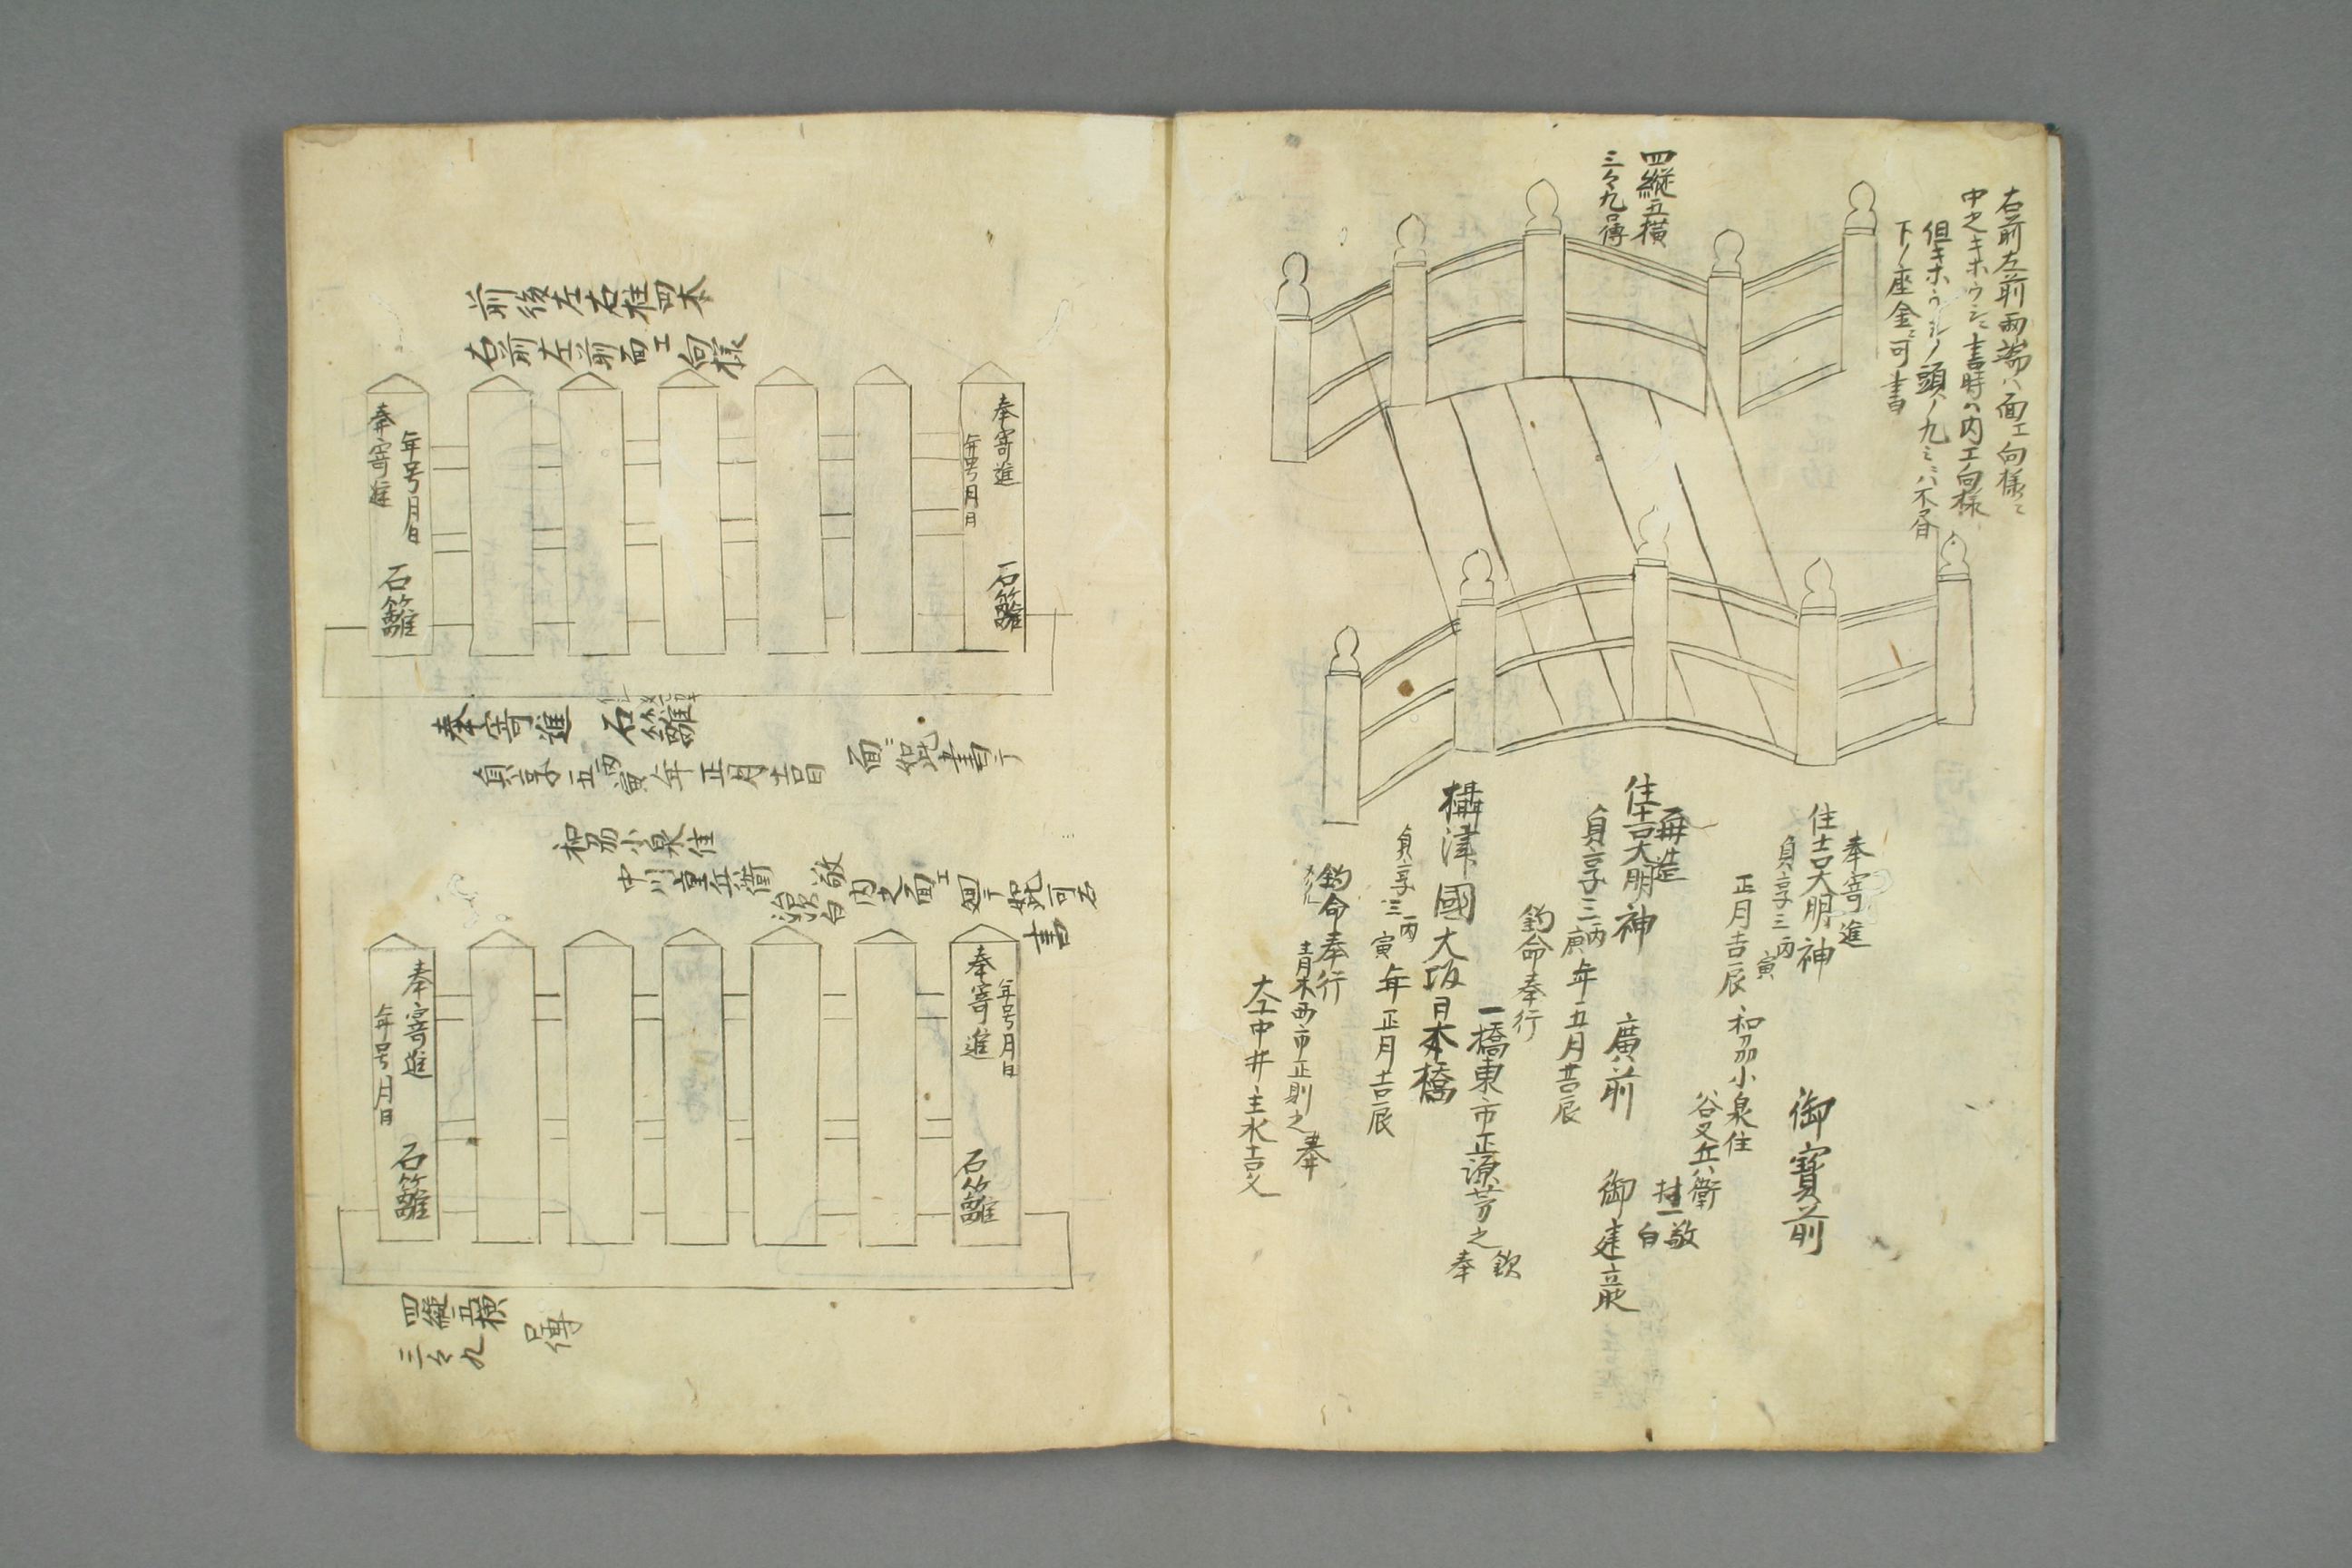 右前左前両端ハ面エ向様ニ
中之キホウシニ書時ハ内エ向様
但キホウシノ頭ノ九ミニハ不書
下ノ座金ニ可書
四縦五横
三々九口傳
奉寄進
住吉大明神　御寳前
貞享三丙寅
正月吉辰
和刕小泉住
谷又兵衛
敬白
再造
住吉大明神　廣前　御建立
貞享三丙寅年五月吉辰
鈞命奉行
一橋東市正源芳之
欽奉
攝津國大坂日本橋
貞享三丙寅年正月吉辰
鈞命奉行
青木西市正則之奉
大工中井主水吉久
前後左右柱四本
右前左前面エ向様
奉寄進
年号月日
石籬
年号月日
奉寄進
石籬
奉寄進　石籬
貞享五丙寅年正月吉日
面ニ如此書ク
和刕小泉住
中川重兵衛
敬白
内之面エ廻リ如此可書
奉寄進
年号月日
石籬
奉寄進
年号月日
石籬
四縦五横
三々九
口傳